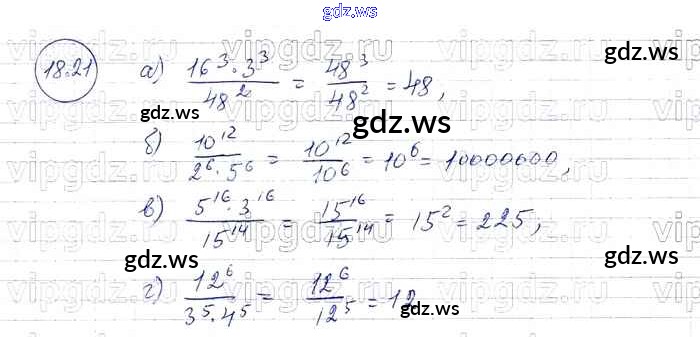 gdz.ws
18.21 а) 16³·3³/48² = 48³/48² = 48,
gdz.ws
gdz.ws gdz.ws
б) 10¹²/2⁶·5⁶ = 10¹²/10⁶ = 10⁶ = 10000000,
в) 5¹⁶·3¹⁶/15¹⁴ = 15¹⁶/15¹⁴ = 15² = 225,
gdz.ws gdz.ws
г) 12⁶/3⁵·4⁵ = 12⁶/12⁵ = 12
gdz.ws